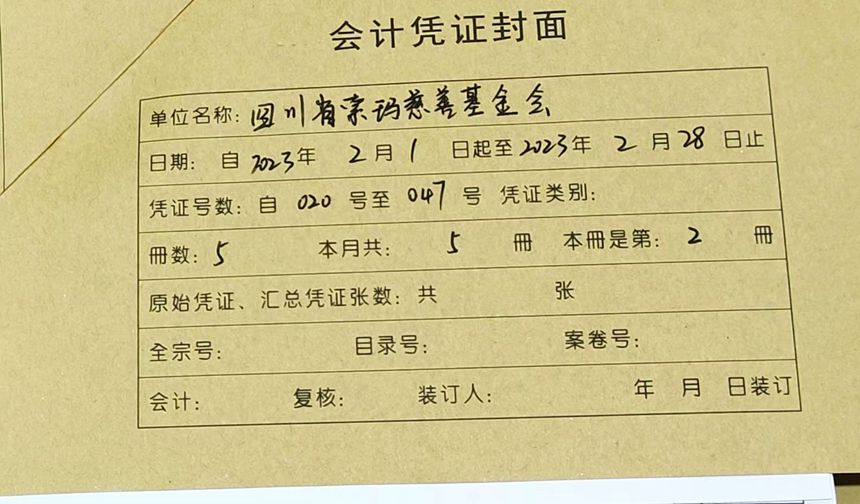 会计凭证封面
单位名称: 四川省索玛慈善基金会
日期: 自 2023年 2月 1 日起至 2023年 2 月 28 日止
凭证号数: 自 020 号至 047 号 凭证类别:
册数: 5 本月共: 5 册 本册是第: 2 册
原始凭证、汇总凭证张数: 共 张
全宗号: 目录号: 案卷号:
会计: 复核: 装订人: 年 月 日装订